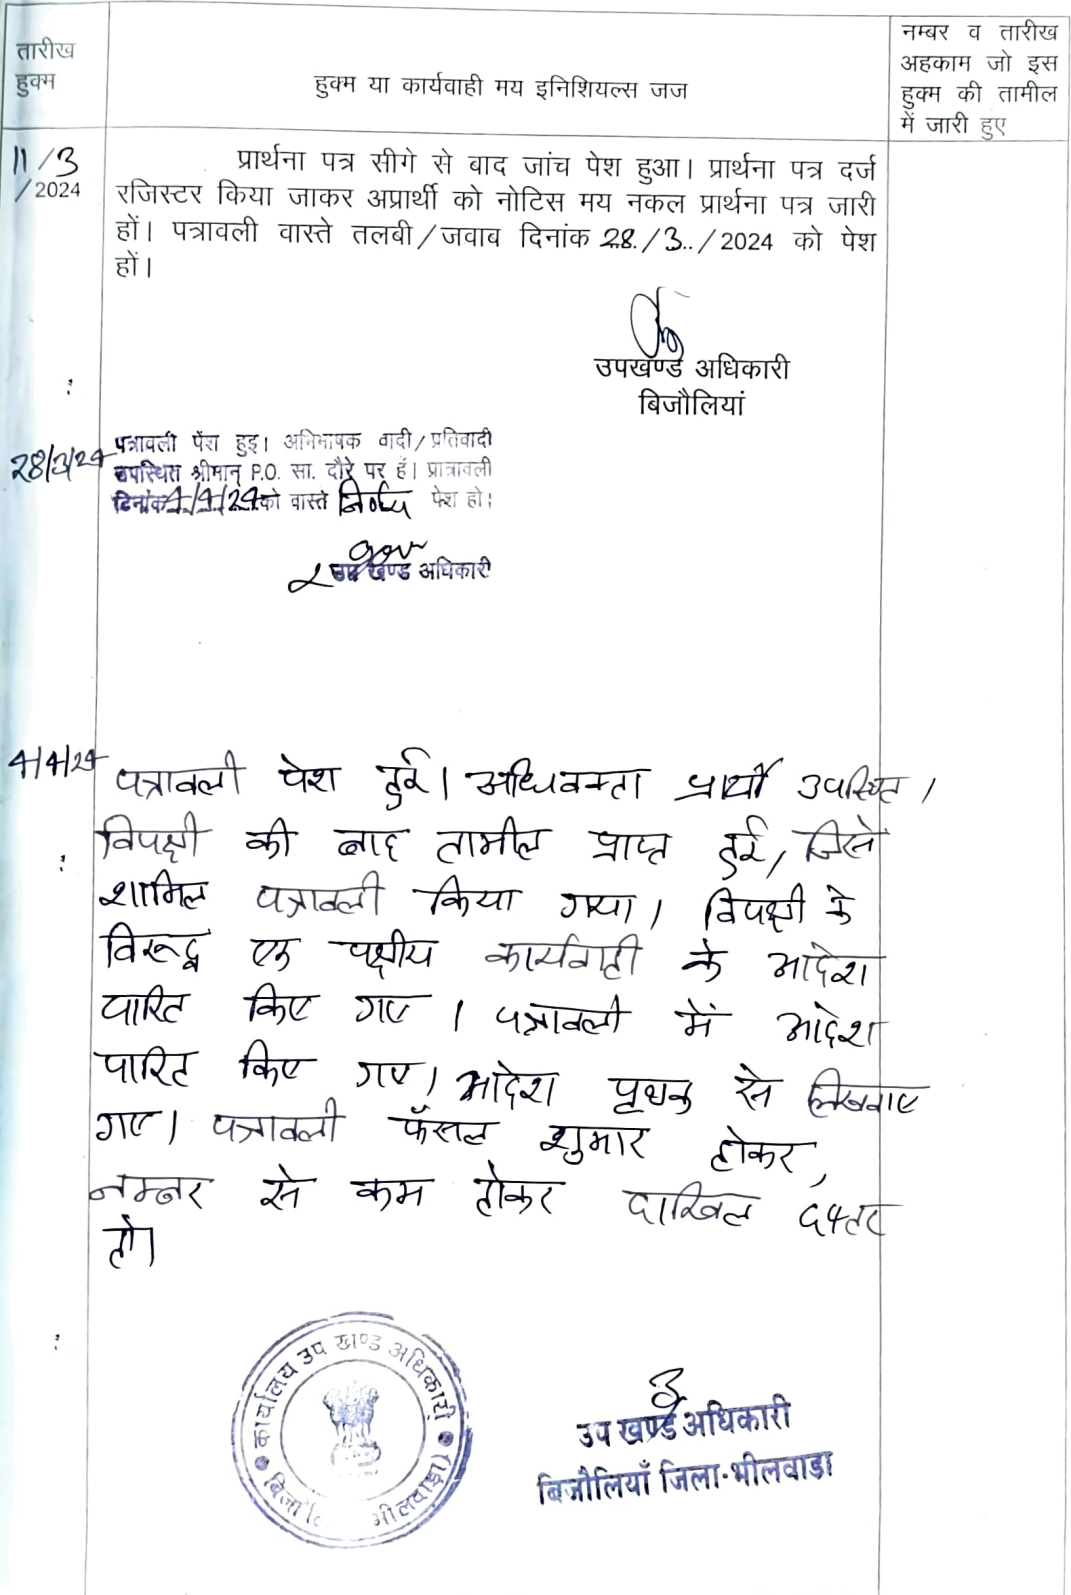 तारीख
हुक्म
हुक्म या कार्यवाही मय इनिशियल्स जज
नम्बर व तारीख
अहकाम जो इस
हुक्म की तामील
में जारी हुए
11/3
/2024
प्रार्थना पत्र सीगे से बाद जांच पेश हुआ। प्रार्थना पत्र दर्ज
रजिस्टर किया जाकर अप्रार्थी को नोटिस मय नकल प्रार्थना पत्र जारी
हों। पत्रावली वास्ते तलबी/जवाब दिनांक 28./3../2024 को पेश
हों।
उपखण्ड अधिकारी
बिजौलियां
28/3/24
पत्रावली पेश हुइ। अभिभाषक वादी/प्रतिवादी
उपस्थित श्रीमान् P.O. सा. दौरे पर हैं। प्रात्रावली
दिनांक 4/4/24 को वास्ते निर्णय पेश हो।
उप खण्ड अधिकारी
4/4/24
पत्रावली पेश हुई। अधिवक्ता प्रार्थी उपस्थित।
विपक्षी की बाद तामील प्राप्त हुई, जिसे
शामिल पत्रावली किया गया। विपक्षी के
विरूद्ध एक पक्षीय कार्यवाही के आदेश
पारित किए गए। पत्रावली में आदेश
पारित किए गए। आदेश पृथक से लिखवाए
गए। पत्रावली फैसल शुमार होकर,
नम्बर से कम होकर दाखिल दफ्तर
हो।
कार्यालय उप खण्ड अधिकारी
(भीलवाड़ा)
उप खण्ड अधिकारी
बिजौलियाँ जिला-भीलवाडा